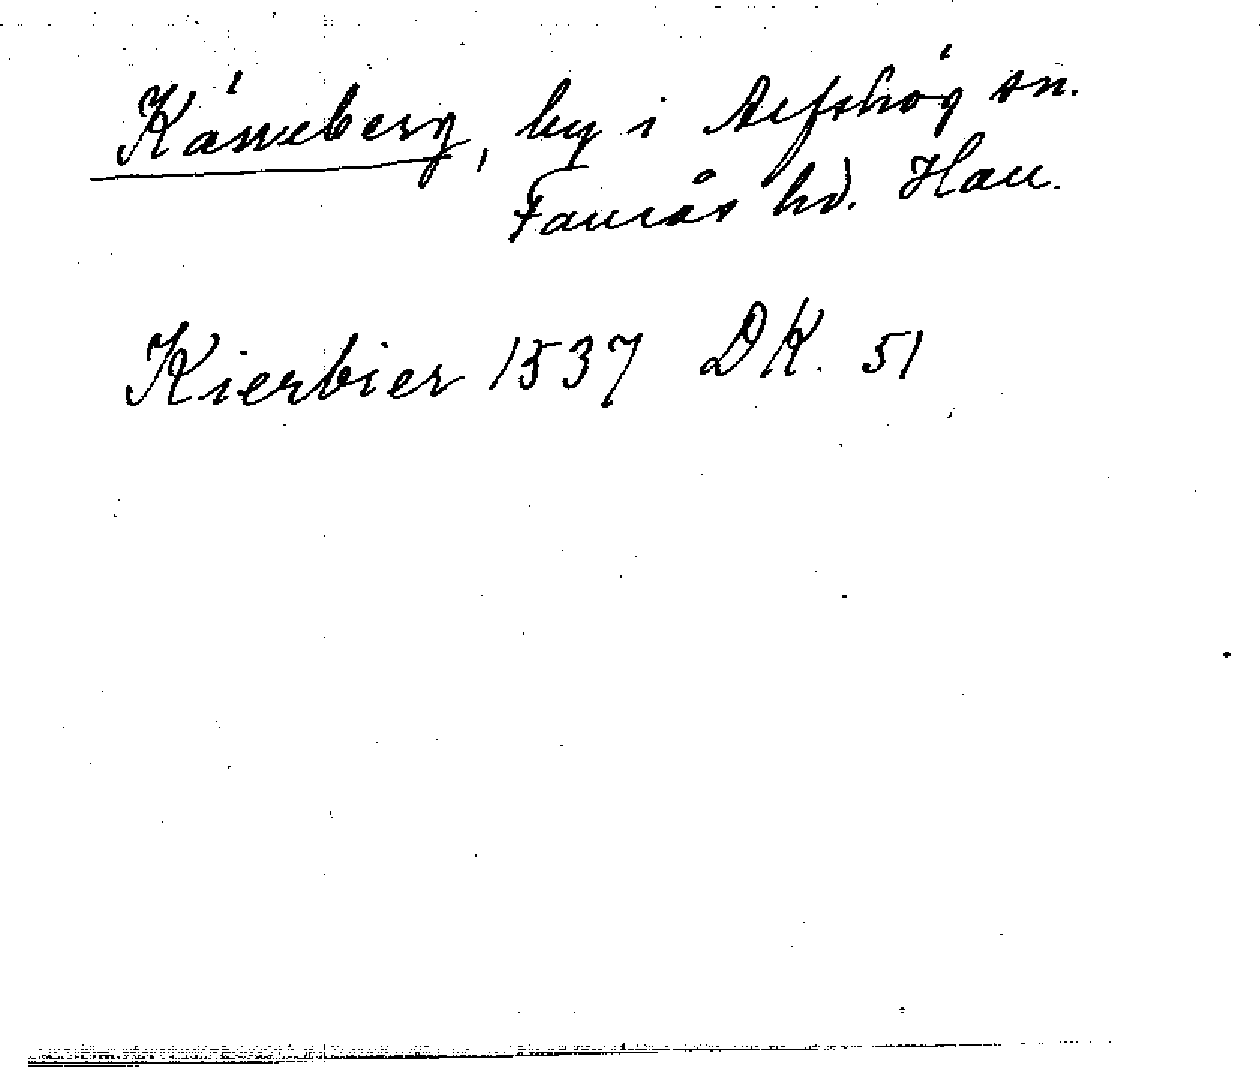 Kärreberg, by i Alfshög sn.
Faurås hd. Hall.
Kierbier 1537 DK. 51